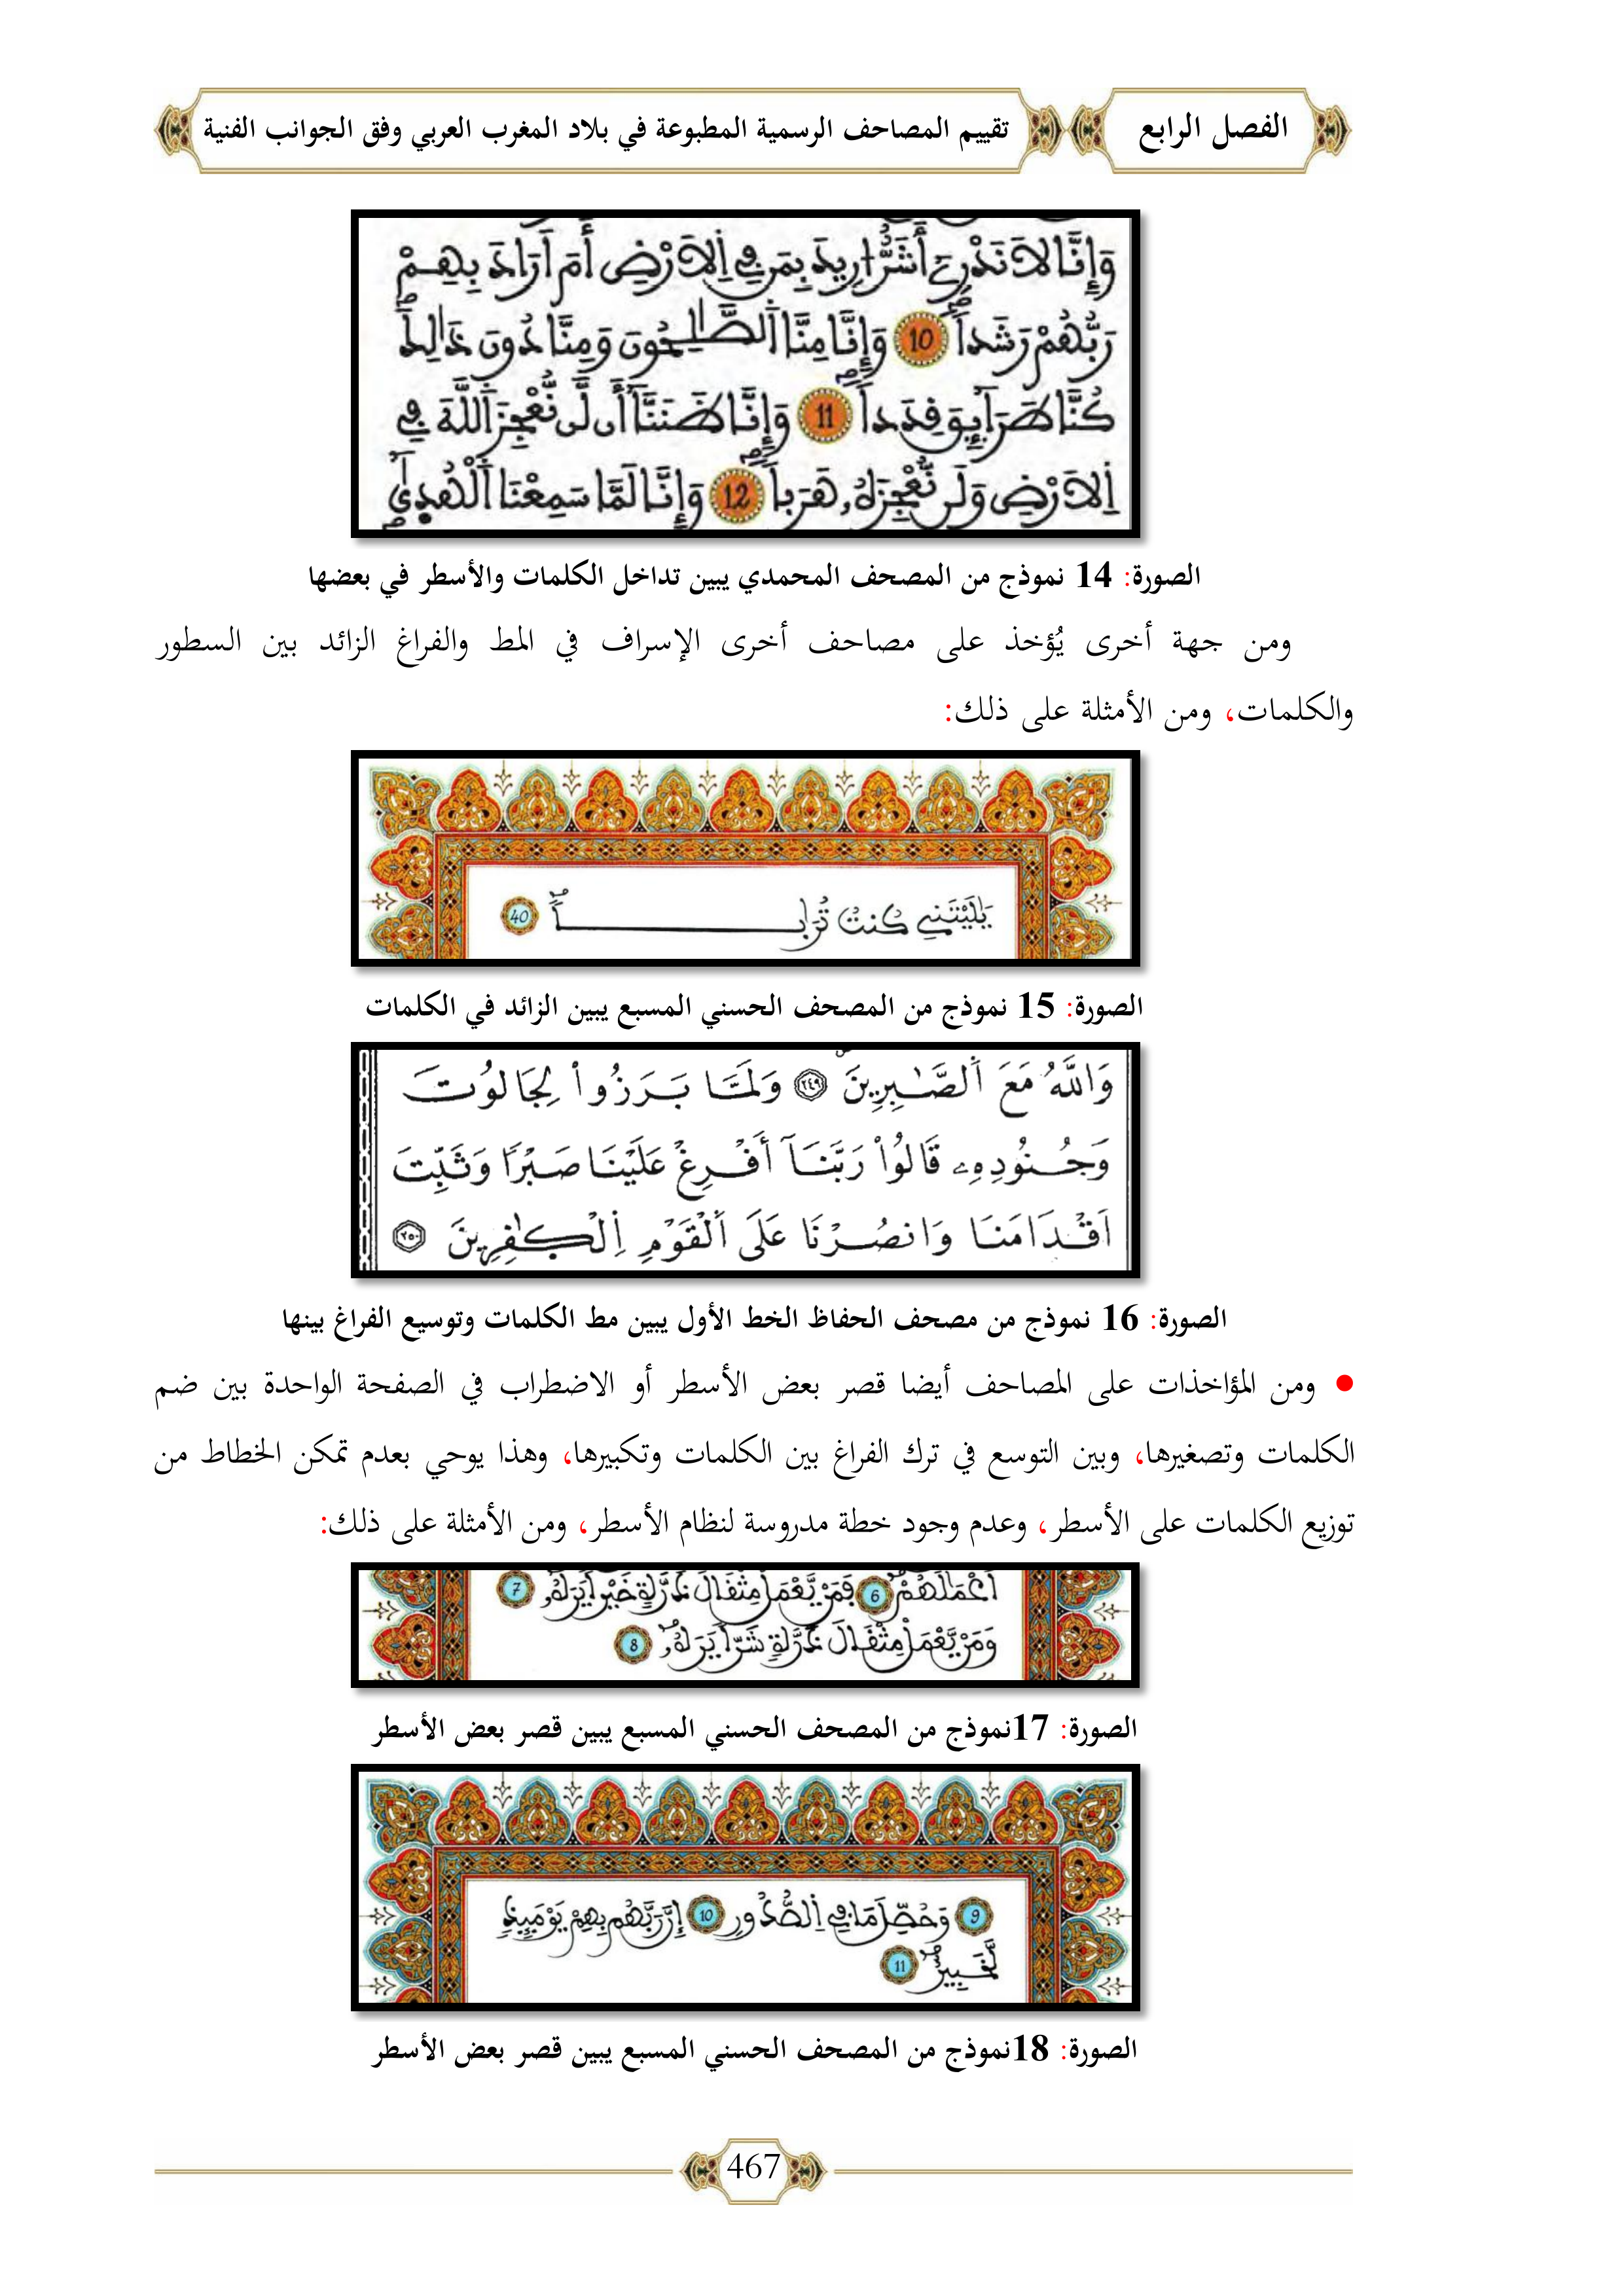 الفصل الرابع
تقييم المصاحف الرسمية المطبوعة في بلاد المغرب العربي وفق الجوانب الفنية
وَإِنَّا لَا نَدْرِے أَشَرٌّ ا۟رِيدَ بِمَن فِے اِ۬لَارْضِ أَمَ اَرَادَ بِهِمْ
رَبُّهُمْ رَشَداٗ 10 وَإِنَّا مِنَّا اَ۬لصَّٰلِحُونَ وَمِنَّا دُونَ ذَٰلِكَ
كُنَّا طَرَآئِقَ قِدَداٗ 11 وَإِنَّا ظَنَنَّآ أَن لَّن نُّعْجِزَ اَ۬للَّهَ فِے
اِ۬لَارْضِ وَلَن نُّعْجِزَهُۥ هَرَباٗ 12 وَإِنَّا لَمَّا سَمِعْنَا اَ۬لْهُد۪ىٰٓ
الصورة: 14 نموذج من المصحف المحمدي يبين تداخل الكلمات والأسطر في بعضها
ومن جهة أخرى يُؤخذ على مصاحف أخرى الإسراف في المط والفراغ الزائد بين السطور
والكلمات، ومن الأمثلة على ذلك:
يَٰلَيْتَنِے كُنتُ تُرَٰباٗ 40
الصورة: 15 نموذج من المصحف الحسني المسبع يبين الزائد في الكلمات
وَاللَّهُ مَعَ اَ۬لصَّٰبِرِينَ ٢٤٩ وَلَمَّا بَرَزُواْ لِجَالُوتَ
وَجُنُودِهِۦ قَالُواْ رَبَّنَآ أَفْرِغْ عَلَيْنَا صَبْرًا وَثَبِّتَ
اَقْدَامَنَا وَانصُرْنَا عَلَى اَ۬لْقَوْمِ اِ۬لْكَٰفِرِينَ ٢٥٠
الصورة: 16 نموذج من مصحف الحفاظ الخط الأول يبين مط الكلمات وتوسيع الفراغ بينها
● ومن المؤاخذات على المصاحف أيضا قصر بعض الأسطر أو الاضطراب في الصفحة الواحدة بين ضم
الكلمات وتصغيرها، وبين التوسع في ترك الفراغ بين الكلمات وتكبيرها، وهذا يوحي بعدم تمكن الخطاط من
توزيع الكلمات على الأسطر، وعدم وجود خطة مدروسة لنظام الأسطر، ومن الأمثلة على ذلك:
أَعْمَٰلَهُمْ 6 فَمَنْ يَّعْمَلْ مِثْقَالَ ذَرَّةٍ خَيْراٗ يَرَهُۥ 7
وَمَنْ يَّعْمَلْ مِثْقَالَ ذَرَّةٖ شَرّاٗ يَرَهُۥ 8
الصورة: 17نموذج من المصحف الحسني المسبع يبين قصر بعض الأسطر
9 وَحُصِّلَ مَا فِے اِ۬لصُّدُورِ 10 إِنَّ رَبَّهُم بِهِمْ يَوْمَئِذٖ
لَّخَبِيرٌ 11
الصورة: 18نموذج من المصحف الحسني المسبع يبين قصر بعض الأسطر
467